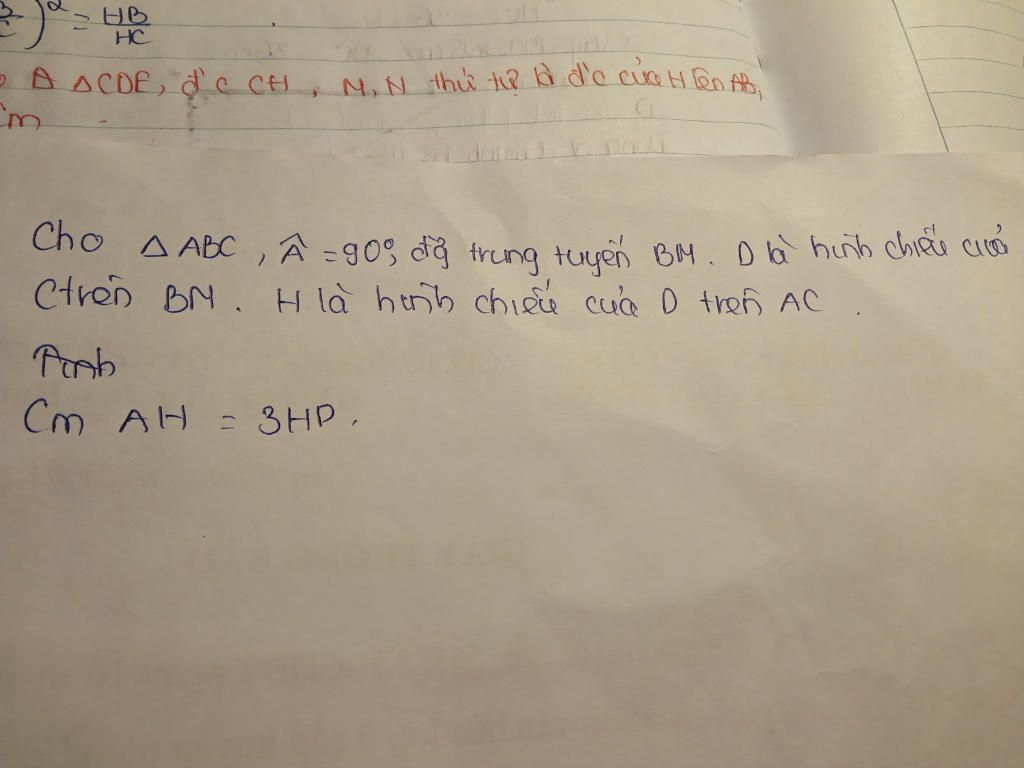 )² = HB/HC
Δ CDE, đ'c CH, M, N thứ tự là đ'c của H lên AB,
Cm
Cho Δ ABC, Â = 90°, đg trung tuyến BM. D là hình chiếu của
C trên BM. H là hình chiếu của D trên AC.
Cm AH = 3HD.